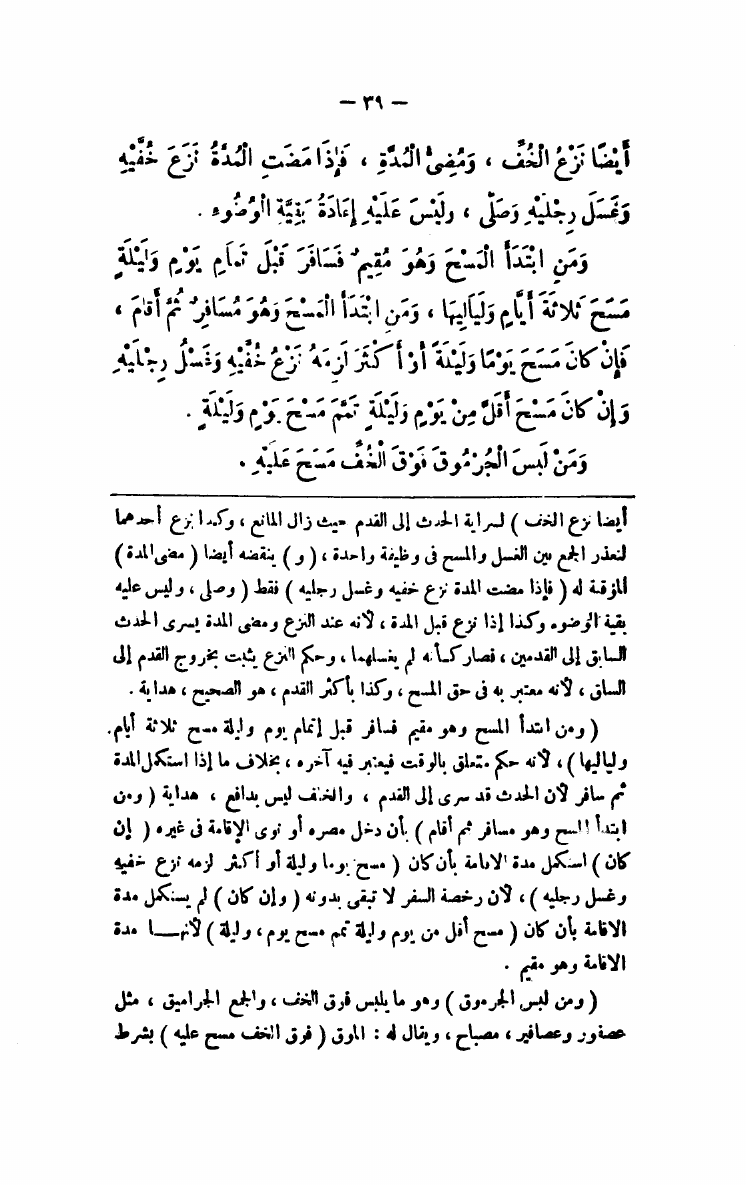 — ٣٩ —
أَيْضًا نَزْعُ الْخُفِّ ، وَمُضِىُّ الْمُدَّةِ ، فَإِذَا مَضَتِ الْمُدَّةُ نَزَعَ خُفَّيْهِ
وَغَسَلَ رِجْلَيْهِ وَصَلَّى ، وَلَيْسَ عَلَيْهِ إِعَادَةُ بَقِيَّةِ الْوُضُوءِ .
وَمَنِ ابْتَدَأَ الْمَسْحَ وَهُوَ مُقِيمٌ فَسَافَرَ قَبْلَ تَمَامِ يَوْمٍ وَلَيْلَةٍ
مَسَحَ ثَلَاثَةَ أَيَّامٍ وَلَيَالِيهَا ، وَمَنِ ابْتَدَأَ الْمَسْحَ وَهُوَ مُسَافِرٌ ثُمَّ أَقَامَ ،
فَإِنْ كَانَ مَسَحَ يَوْمًا وَلَيْلَةً أَوْ أَكْثَرَ لَزِمَهُ نَزْعُ خُفَّيْهِ وَغَسْلُ رِجْلَيْهِ
وَإِنْ كَانَ مَسَحَ أَقَلَّ مِنْ يَوْمٍ وَلَيْلَةٍ تَمَّمَ مَسْحَ يَوْمٍ وَلَيْلَةٍ .
وَمَنْ لَبِسَ الْجُرْمُوقَ فَوْقَ الْخُفِّ مَسَحَ عَلَيْهِ .
أيضا نزع الخف ) لسراية الحدث إلى القدم حيث زال المانع ، وكذا نزع أحدهما
لتعذر الجمع بين الغسل والمسح فى وظيفة واحدة ، ( و ) ينقضه أيضا ( مضى المدة )
المؤقتة له ( فإذا مضت المدة نزع خفيه وغسل رجليه ) فقط ( وصلى ، وليس عليه
بقية الوضوء وكذا إذا نزع قبل المدة ، لأنه عند النزع ومضى المدة يسرى الحدث
السابق إلى القدمين ، فصار كأنه لم يغسلهما ، وحكم النزع يثبت بخروج القدم إلى
الساق ، لأنه معتبر به فى حق المسح ، وكذا بأكثر القدم ، هو الصحيح ، هداية .
( ومن ابتدأ المسح وهو مقيم فسافر قبل إتمام يوم وليلة مسح ثلاثة أيام.
ولياليها ) ، لأنه حكم متعلق بالوقت فيعتبر فيه آخره ، بخلاف ما إذا استكمل المدة
ثم سافر لأن الحدث قد سرى إلى القدم ، والخف ليس بدافع ، هداية ( ومن
ابتدأ المسح وهو مسافر ثم أقام ) بأن دخل مصره أو نوى الإقامة فى غيره ( إن
كان ) استكمل مدة الإقامة بأن كان ( مسح يوما وليلة أو أكثر لزمه نزع خفيه
وغسل رجليه ) ، لأن رخصة السفر لا تبقى بدونه ( وإن كان ) لم يستكمل مدة
الاقامة بأن كان ( مسح أقل من يوم وليلة تمم مسح يوم ، وليلة ) لأنهــا مدة
الاقامة وهو مقيم .
( ومن لبس الجرموق ) وهو ما يلبس فوق الخف ، والجمع الجراميق ، مثل
عصفور وعصافير ، مصباح ، ويقال له : الموق ( فوق الخف مسح عليه ) بشرط